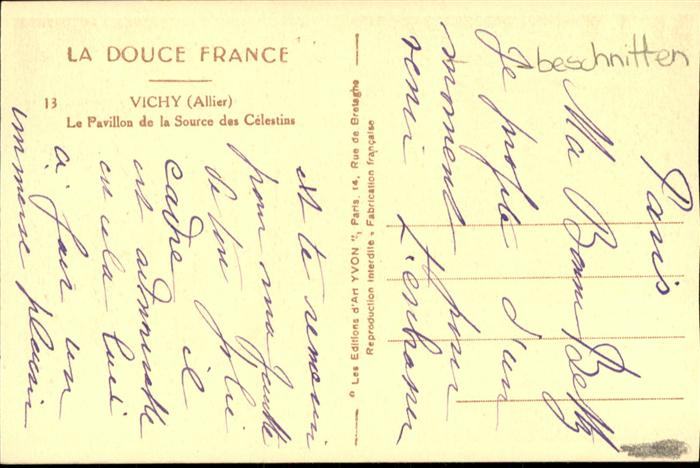 LA DOUCE FRANCE
13 VICHY (Allier)
Le Pavillon de la Source des Célestins
" Les Editions d'Art YVON ", Paris, 14, Rue de Bretagne
Reproduction interdite - Fabrication française
beschnitten
Paris
Ma Bonne Betty
Je profite d'un
moment pour
venir t'embrasser
et te remercier
pour ma gentille
de ton joli
cadre il
est admirable
et cela lui
a fair un
immense plaisir